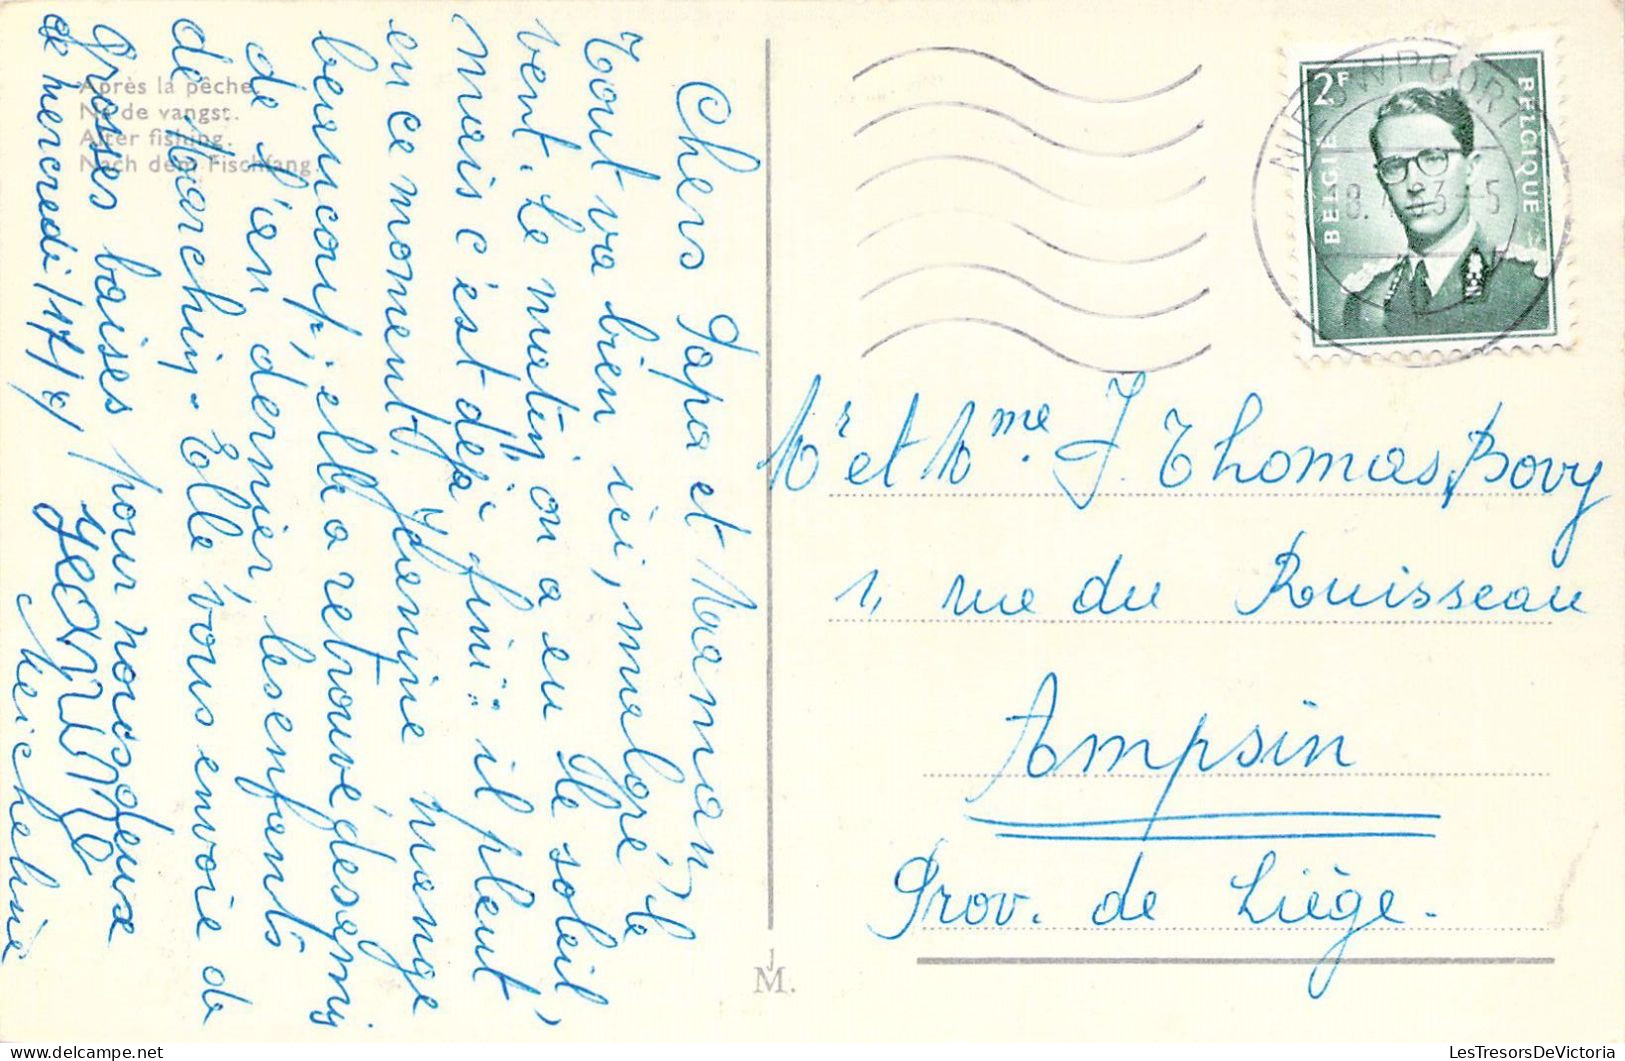 Après la pêche.
Na de vangst.
After fishing.
Nach dem Fischfang.
Chers Papa et Maman,
Tout va bien ici, malgré le
vent. Le matin on a eu le soleil,
mais c'est déjà fini: il pleut
en ce moment. mange
beaucoup; elle a retrouvé des amis
de l'an dernier, les enfants
de . Elle vous envoie de
grosses baises pour nous deux
ce mercredi 17/
Jeannine
Micheline
2F
BELGIE
BELGIQUE
NIEUWPOORT
Mr et Mme J. Thomas, Bovy
1, rue du Ruisseau
Ampsin
Prov. de Liège.
J
M.
LesTresorsDeVictoria